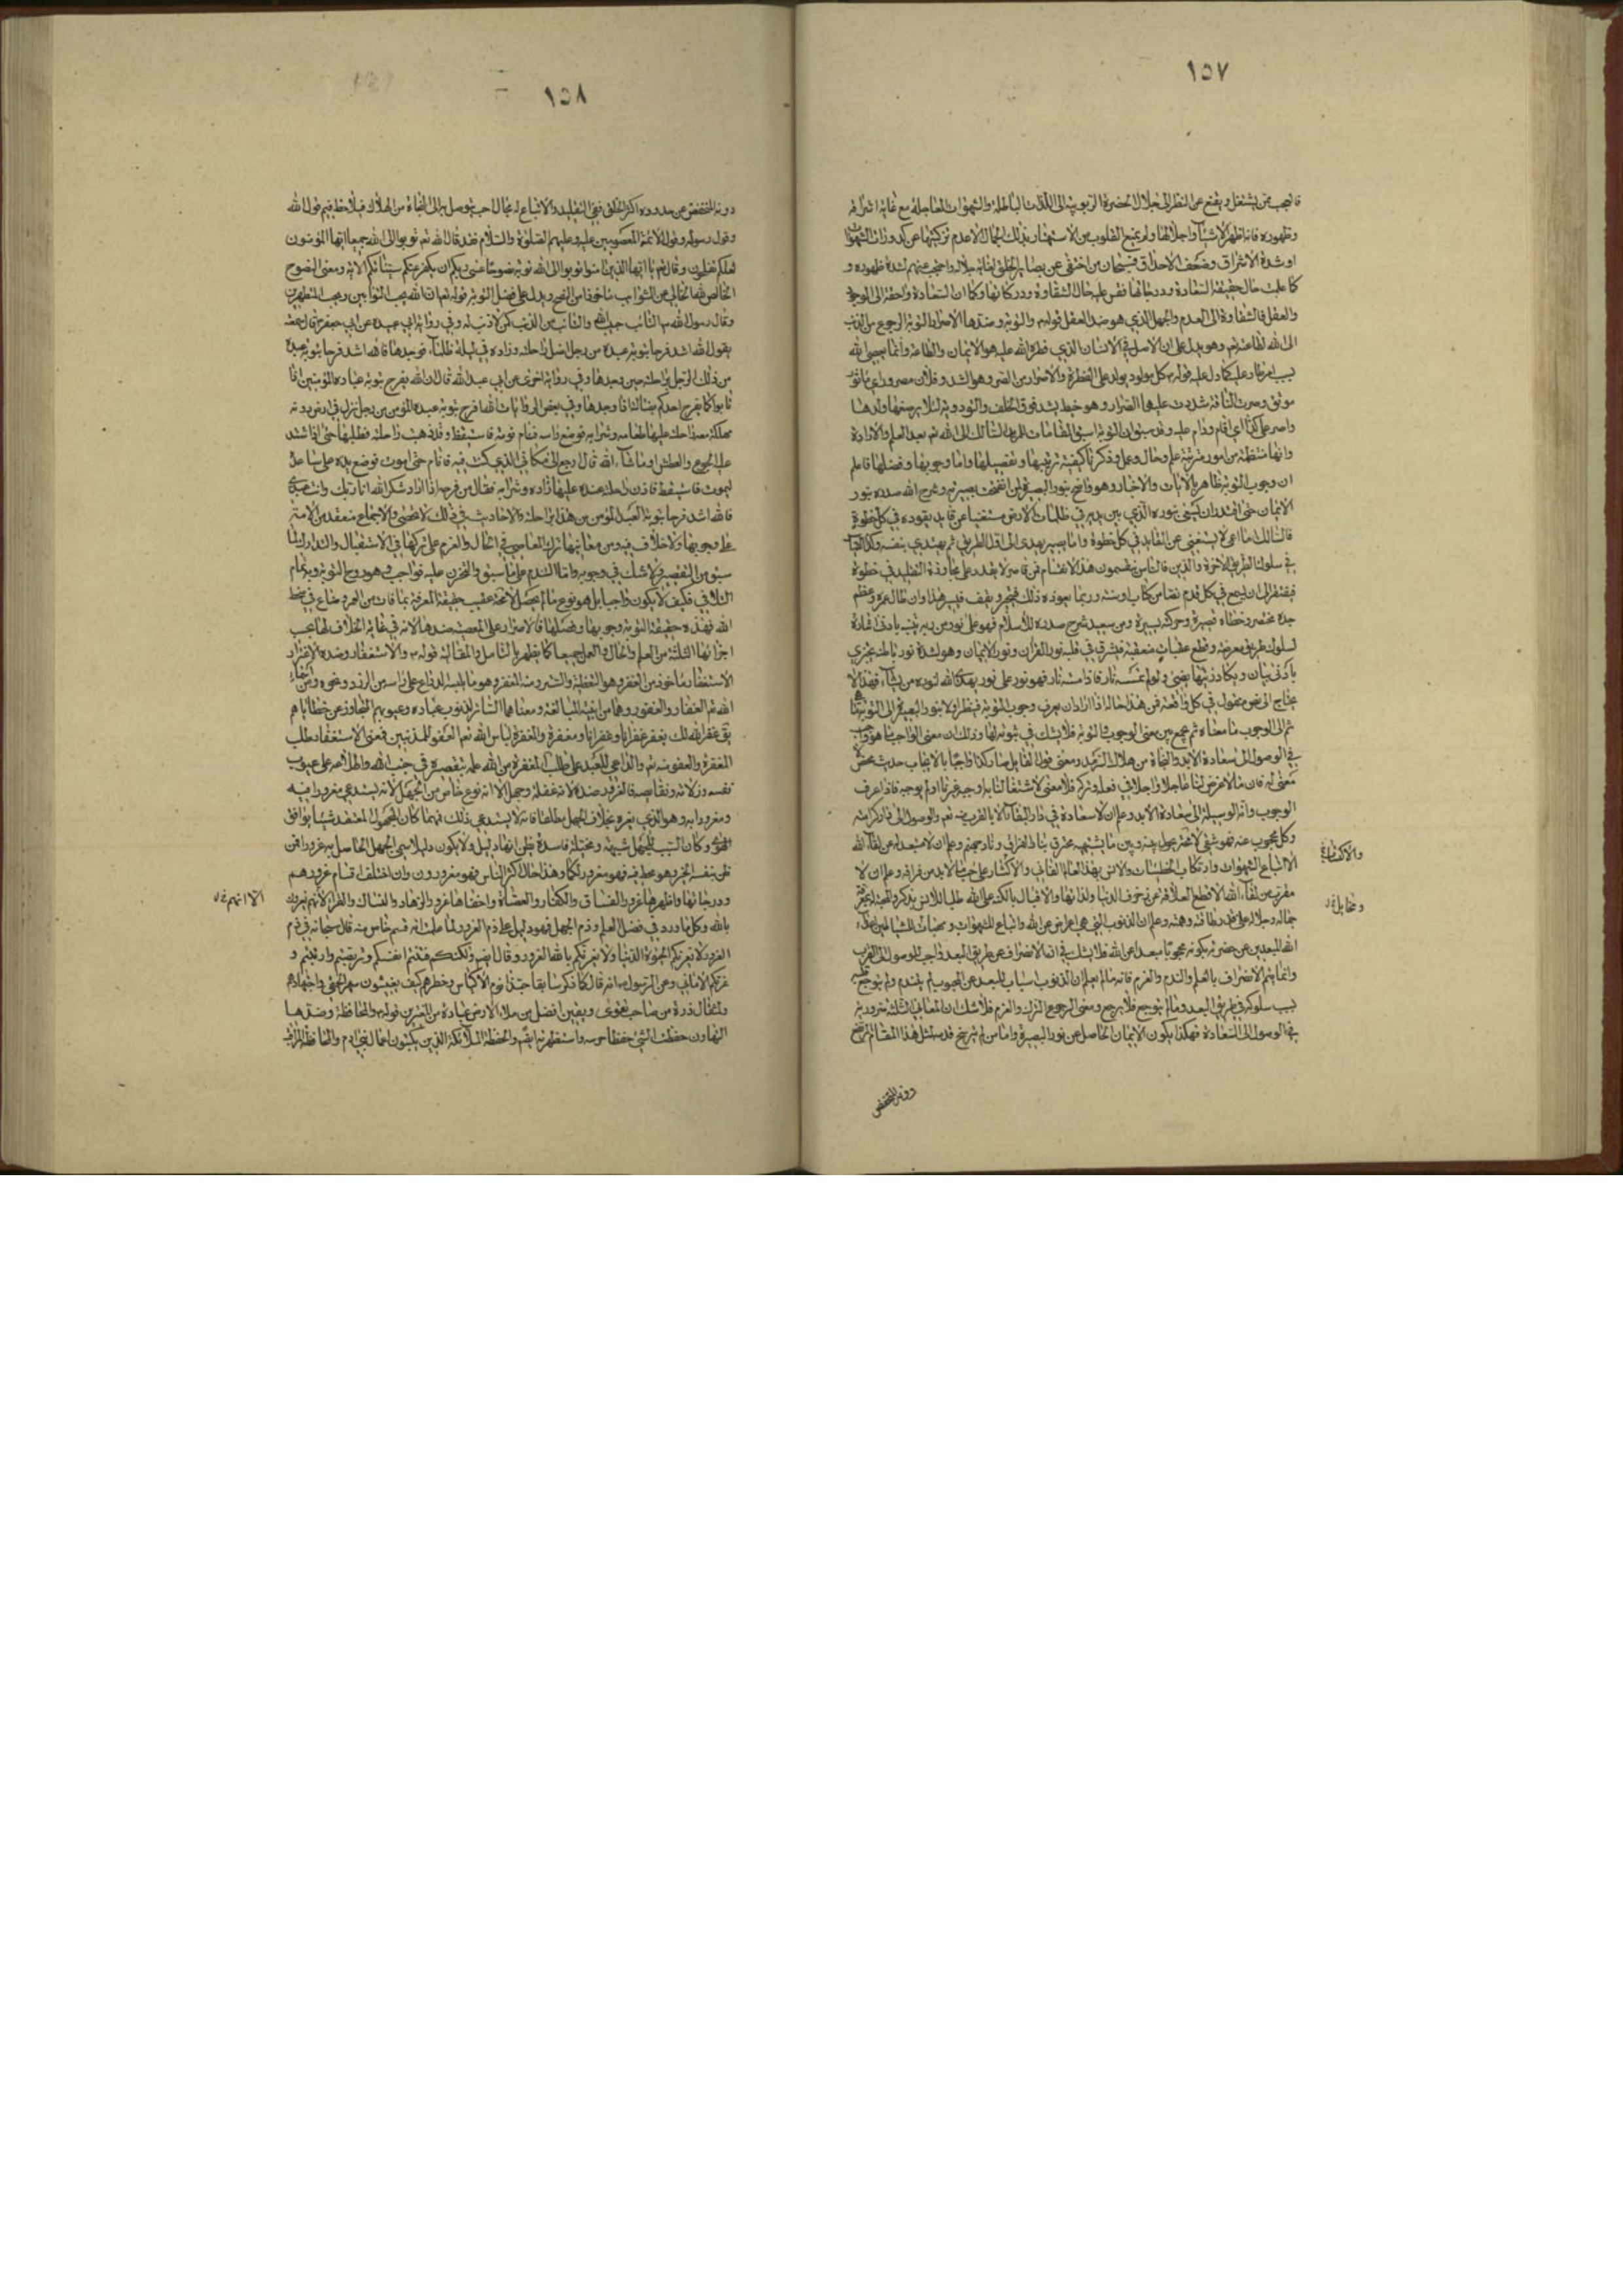 ١٥٧
فالعجب ممن يشتغل ويقنع عن النظر الى جلال الحضرة الربوبية الى اللذات الباطلة والشهوات العاجلة مع غاية اشراقه
وظهوره فانه اظهر الاشياء واجلاها ولم يمنع القلوب من الاستهتار بذلك الجمال الا عدم تزكيتها عن كدورات الشهوات
او شدة الاشراق وضعف الاحداق فسبحان من اختفى عن بصاير الخلق بغاية جلاله واحتجب عنهم لشدة ظهوره و
كما علمت حال حقيقة السعادة ودرجاتها فقس عليه حال الشقاوة ودركاتها وكما ان السعادة راجعة الى الوجود
والعقل فالشقاوة الى العدم والجهل الذي هو ضد العقل قوله والتوبة وضدها الاصرار التوبة الرجوع من الذنب
الى الله لطاعته وهو يدل على ان الاصل في الانسان الذي فطره الله عليه هو الايمان والطاعة وانما يعصي الله
بسبب امر طار عليه كما دل عليه قوله كل مولود يولد على الفطرة والاصرار من الصر وهو الشد وفلان مصرور اي ماثور
موثق وصررت الناقة شددت عليها الصرار وهو خيط يشد فوق الخلف والتودية لئلا يرضعها ولدها
واصر على كذا اي اقام ودام عليه وقد سبق ان التوبة اسبق المقامات للرجل السالك الى الله تعالى بعد العلم والارادة
وانها منتظمة من امور مترتبة علم وحال وعمل وذكرنا كيفية ترتيبها وتفصيلها واما وجوبها وفضلها فاعلم
ان وجوب التوبة ظاهر بالايات والاخبار وهو واضح بنور البصيرة لمن انفتحت بصيرته وشرح الله صدره بنور
الايمان حتى اقتدر ان يسعى بنوره الذي بين يديه في ظلمات الارض مستغنيا عن قايد يقوده في كل خطوة
فالسالك اما اعمى لا يستغني عن القايد في كل خطوة واما بصير يهدى الى اول الطريق ثم يهتدي بنفسه وكذا الناس
في سلوك طريق الاخرة والدين فالناس ينقسمون هذا الانقسام فمن قاصر لا يقدر على مجاوزة التقليد في خطوة
فيفتقر الى ان يسمع في كل قدم نصا من كتاب او سنة وربما يعوزه ذلك فيتحير ويقف فسير هذا وان طال عمره وعظم
جده مختصر وخطاه قصيرة وحركته يسيرة ومن سعيد شرح صدره للاسلام فهو على نور من ربه يتنبه بادنى اشارة
لسلوك طريق معوضة وقطع عقبات متعقبة فيشرق في قلبه نور القران ونور الايمان وهو لشدة نور باطنه يجتزي
بادنى بيان ويكاد زيتها يضيئ ولو لم تمسسه نار فاذا مسته نار فهو نور على نور يهدي الله لنوره من يشاء فهذا لا
يحتاج الى نص منقول في كل واقعة فمن هذا حاله اذا اراد ان يعرف وجوب التوبة فينظر اولا بنور البصيرة الى التوبة ما هي
ثم الى الوجوب ما معناه ثم يجمع بين معنى الوجوب والتوبة فلا يشك في ثبوته لها وذلك ان معنى الواجب ما هو واجب
في الوصول الى سعادة الابد والنجاة من هلاك السرمد ومعنى قول القايل صار كذا واجبا بالايجاب حديث محض لا
معنى له فان ما لا غرض لنا عاجلا واجلا في فعله وتركه فلا معنى لاشتغالنا به اوجبه غيرنا او لم يوجبه فاذا عرف
الوجوب وانه الوسيلة الى سعادة الابد وعلم ان لا سعادة في دار البقاء الا بالقرب منه تعالى والوصول الى دار كرامته
وكل محجوب عنه فهو شقي لا محالة محول بينه وبين ما يشتهيه محترق بنار الفراق ونار جهنم وعلم ان لا مبعد له عن لقاء الله
الا اتباع الشهوات وارتكاب الخطيئات والانس بهذا العالم الفاني والاكباب على حب ما لا بد من فراقه وعلم ان لا
مقرب من لقاء الله الا قطع العلاقة عن زخرف الدنيا ولذاتها والاقبال بالكنه على الله طلبا للانس بذكره والمحبة بمعرفة
جماله وجلاله على قدر طاقته وهمته وعلم ان الذنوب التي هي اعراض عن الله واتباع للشهوات ومحاب الشياطين اعداء
الله المبعدين عن حضرته يكونه محجوبا مبعدا عن الله فلا يشك في ان الانصراف عن طريق البعد واجب للوصول الى القرب
وانما يتم الانصراف بالعلم والندم والعزم فانه ما لم يعلم ان الذنوب اسباب للبعد عن المحبوب لم يتندم ولم يتوجع قلبه
بسبب سلوكه في طريق البعد وما لم يتوجع فلا يرجع ومعنى الرجوع الترك والعزم فلا شك ان المعاني الثلثة ضرورية
في الوصول الى السعادة فهكذا يكون الايمان الحاصل عن نور البصيرة واما من لم يترشح قدمه لمثل هذا المقام المرتفع
دونه المنخفض
١٥٨
دونه المنخفض عن حدوده اكثر الخلق ففي التقليد والاتباع له مجال رحب يتوصل به الى النجاة من الهلاك فيلاحظ فيه قول الله
وقول رسوله وقول الائمة المعصومين عليه وعليهم الصلوة والسلام فقد قال الله تعالى توبوا الى الله جميعا ايها المؤمنون
لعلكم تفلحون وقال تعالى يا ايها الذين امنوا توبوا الى الله توبة نصوحا عسى ربكم ان يكفر عنكم سيئاتكم الاية ومعنى النصوح
الخالص لله الخالي عن الشوايب ماخوذا من النصح ويدل على فضل التوبة قوله تعالى ان الله يحب التوابين ويحب المتطهرين
وقال رسول الله ص التائب حبيب الله والتائب من الذنب كمن لا ذنب له وفي رواية ابي عبيدة عن ابي جعفر ع قال سمعته
يقول الله اشد فرحا بتوبة عبده من رجل اضل راحلته وزاده في ليلة ظلماء فوجدها فالله اشد فرحا بتوبة عبده
من ذلك الرجل براحلته حين وجدها وفي رواية اخرى عن ابي عبد الله قال ان الله يفرح بتوبة عباده المؤمنين اذا
تابوا كما يفرح احدكم بضالته اذا وجدها وفي بعض الروايات لله افرح بتوبة عبده المؤمن من رجل نزل في ارض دوية
مهلكة معه راحلته عليها طعامه وشرابه فوضع راسه فنام نومة فاستيقظ وقد ذهبت راحلته فطلبها حتى اذا اشتد
عليه الجوع والعطش او ما شاء الله قال ارجع الى مكاني الذي كنت فيه فانام حتى اموت فوضع يده على ساعده
ليموت فاستيقظ فاذن راحلته عنده عليها زاده وشرابه فقال من فرحه اذا اراد شكر الله انا ربك وانت عبدي
فالله اشد فرحا بتوبة العبد المؤمن من هذا براحلته والاحاديث في ذلك لا تحصى والاجماع منعقد من الامة
على وجوبها ولا خلاف فيه ومن معانيها ترك المعاصي في الحال والعزم على تركها في الاستقبال والتدارك لما
سبق من التقصير ولا شك في وجوبه واما الندم على ما سبق والتحزن عليه فواجب وهو روح التوبة وبه تمام
التلافي فكيف لا يكون واجبا بل هو نوع ما لم يحصل لا محالة عقيب حقيقة المعرفة بما فات من العمر وضاع في سخط
الله فهذه حقيقة التوبة وجوبها وفضلها فالاصرار على المعصية ضدها لانه في غاية الخلاف لها بحسب
اجزائها الثلثة من العلم والحال والعمل جميعا كما يظهر بالتامل والمقابلة قوله والاستغفار وضده الاغترار
الاستغفار ماخوذ من الغفر وهو التغطية والستر ومنه المغفر وهو ما يلبسه الدارع على راسه من الزرد ونحوه ومن اسماء
الله تعالى الغفار والغفور وهما من ابنية المبالغة ومعناهما الساتر لذنوب عباده وعيوبهم المتجاوز عن خطاياهم
يق غفر الله لك يغفر غفرا وغفرانا ومغفرة والمغفرة لباس الله تعالى العفو للمذنبين فمعنى الاستغفار طلب
المغفرة والعفو منه تعالى والداعي للعبد على طلب المغفرة من الله علمه بتقصيره في جنب الله واطلاعه على عيوب
نفسه وزلاته ونقايصه فالغرور ضده لانه غفلة وجهل الا انه نوع خاص من الجهل لانه يستدعي مغرورا فيه
ومغرورا به وهو الذي يغره بخلاف الجهل مطلقا فانه لا يستدعي ذلك فمهما كان المجهول المعتقد شيئا يوافق
الهوى وكان السبب للجهل شبهة ومخيلة فاسدة يظن انها دليل ولا يكون دليلا سمي الجهل الحاصل به غرورا فمن
ظن بنفسه الخير وهو مخط فيه فهو مغرور كما وهذا حال اكثر الناس فهو مغرورون وان اختلفت اقسام غرورهم
ودرجاتها واظهرها غرور الفساق والكفار والعصاة واخفاها غرور الزهاد والنساك والقراء الا انهم غيرون
بالله وكل ما ورد في فضل العلم وذم الجهل فهو دليل على ذم الغرور لما علمت انه قسم خاص منه قال سبحانه في ذم
الغرور لا تغرنكم الحيوة الدنيا ولا يغرنكم بالله الغرور وقال ايض ولكنكم فتنتم انفسكم وتربصتم وارتبتم و
غرتكم الاماني وعن الرسول انه قال كما ذكر سابقا حبذا نوم الاكياس وفطرهم كيف يغبنون سهر الحمقى واجتهادهم
ولمثقال ذرة من صاحب تقوى ويقين افضل من ملاء الارض عبادة من المغترين قوله والمحافظة وضدها
التهاون حفظت الشئ حفظا حرسه واستظهرته ايضا والحفظة الملائكة الذين يكتبون اعمال بني ادم والمحافظة المراقبة